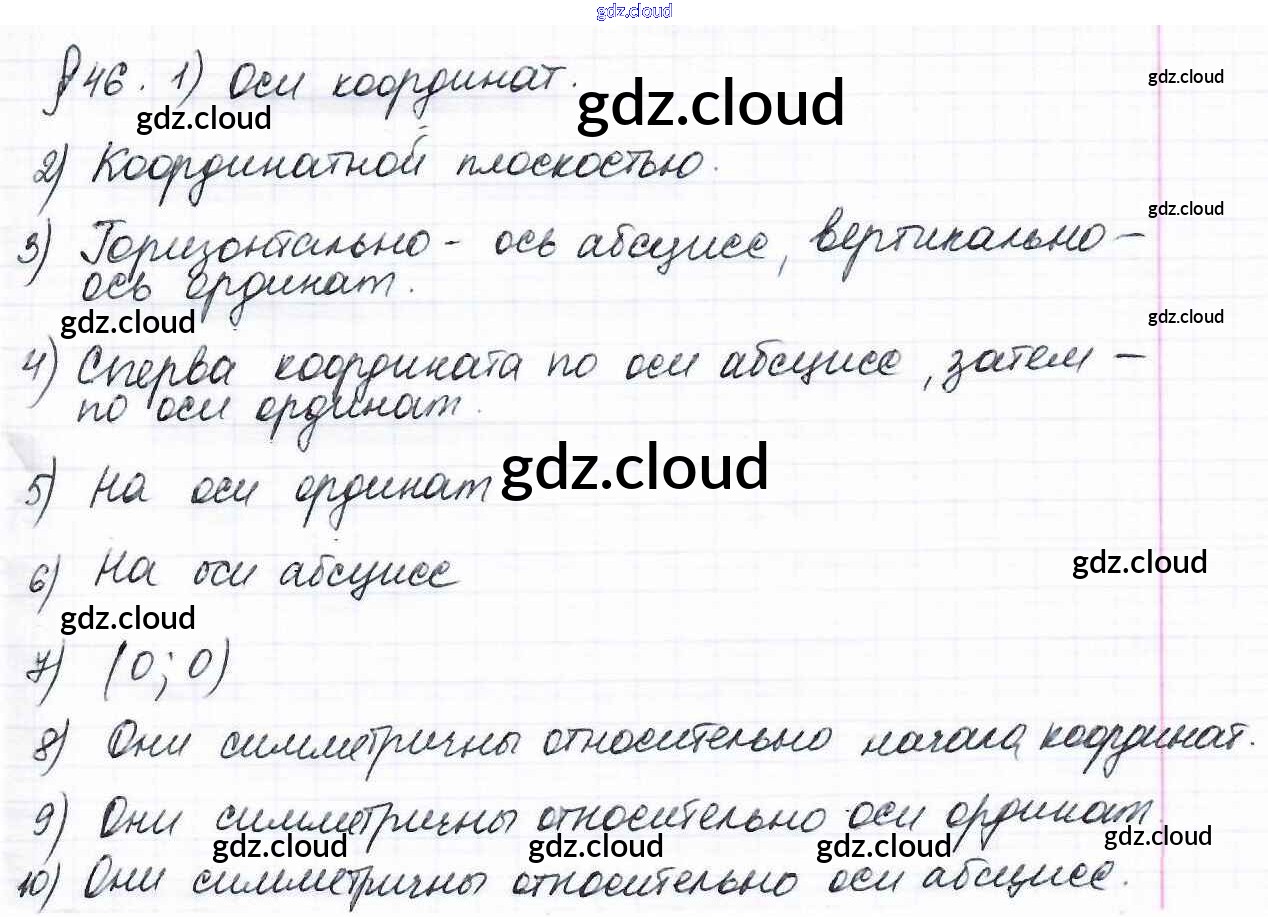 gdz.cloud
§ 46. 1) Оси координат.
gdz.cloud
gdz.cloud
gdz.cloud
2) Координатной плоскостью.
gdz.cloud
3) Горизонтально - ось абсцисс, вертикально —
ось ординат.
gdz.cloud
gdz.cloud
4) Сперва координата по оси абсцисс, затем —
по оси ординат.
5) На оси ординат
gdz.cloud
6) На оси абсцисс
gdz.cloud
gdz.cloud
7) (0; 0)
8) Они симметричны относительно начала координат.
9) Они симметричны относительно оси ординат.
gdz.cloud gdz.cloud gdz.cloud gdz.cloud
10) Они симметричны относительно оси абсцисс.